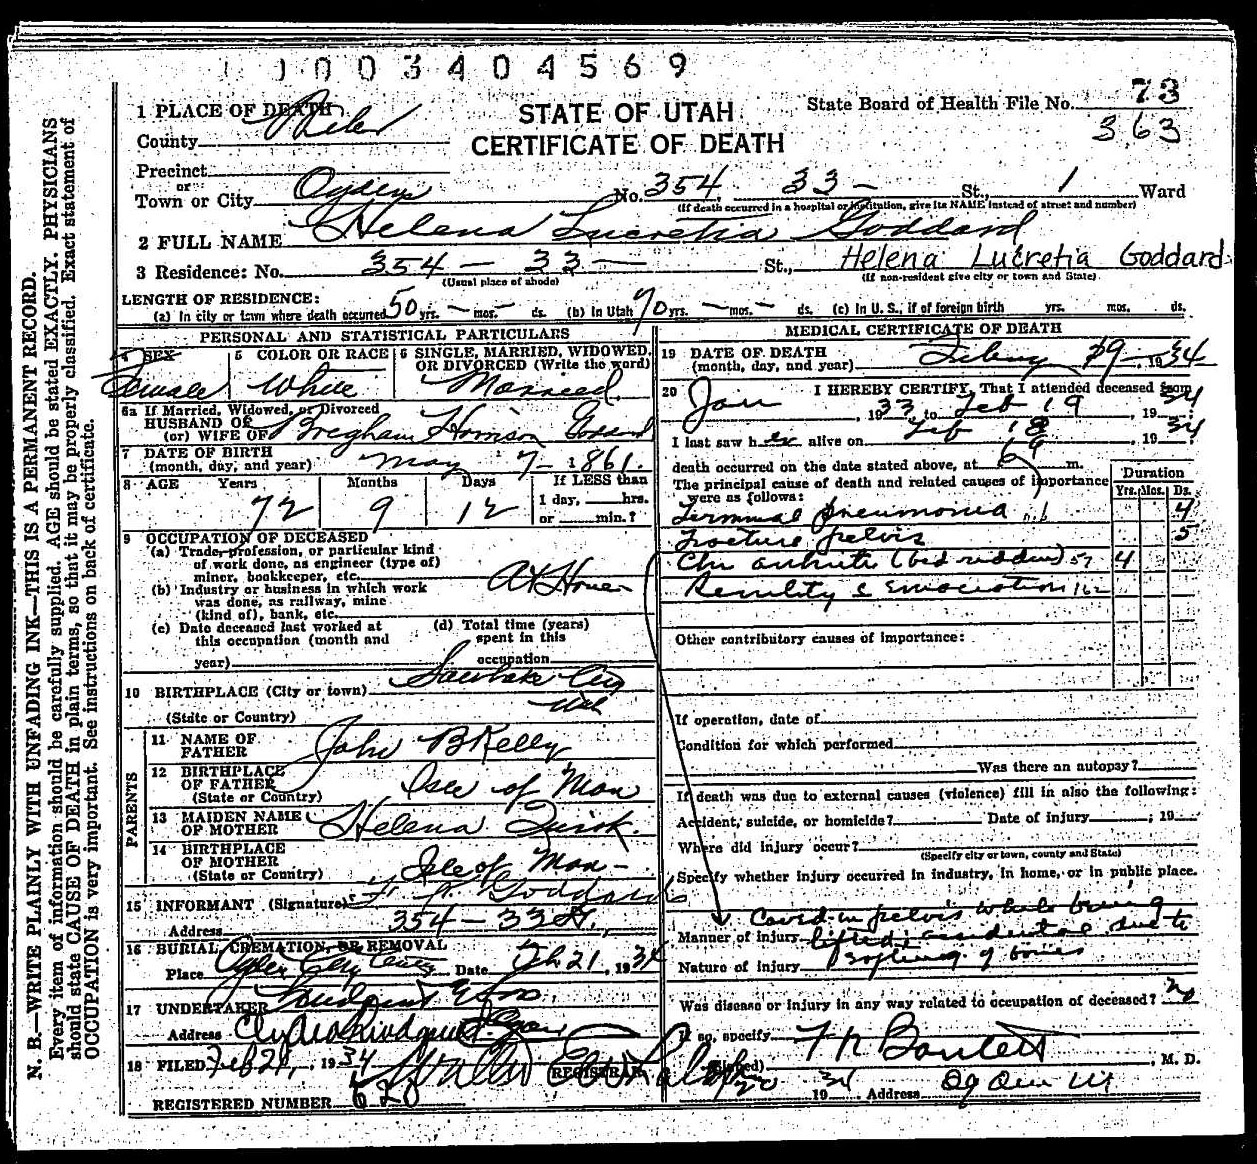 1 0 0 3 4 0 4 5 6 9
STATE OF UTAH
CERTIFICATE OF DEATH
State Board of Health File No. 73
363
1 PLACE OF DEATH
County
Precinct
or
Town or City Ogden No. 354 33 - St., 1 Ward
(If death occurred in a hospital or institution, give its NAME instead of street and number)
2 FULL NAME Helena Lucretia Goddard
3 Residence: No. 354 - 33 - St., Helena Lucretia Goddard
(Usual place of abode) (If non-resident give city or town and State)
LENGTH OF RESIDENCE:
(a) In city or town where death occurred 50 yrs. - mos. - ds. (b) In Utah 70 yrs. - mos. - ds. (c) In U. S., if of foreign birth yrs. mos. ds.
PERSONAL AND STATISTICAL PARTICULARS
4 SEX
Female
5 COLOR OR RACE
White
6 SINGLE, MARRIED, WIDOWED, OR DIVORCED (Write the word)
Married
6a If Married, Widowed, or Divorced
HUSBAND OF
(or) WIFE OF Goddard
7 DATE OF BIRTH
(month, day, and year) May 7 - 1861.
8 AGE Years Months Days If LESS than
1 day, hrs.
or min.?
72 9 12
9 OCCUPATION OF DECEASED
(a) Trade, profession, or particular kind
of work done, as engineer (type of)
miner, bookkeeper, etc.
(b) Industry or business in which work
was done, as railway, mine
(kind of), bank, etc.
At Home
(c) Date deceased last worked at
this occupation (month and
year)
(d) Total time (years)
spent in this
occupation
10 BIRTHPLACE (City or town)
(State or Country)
PARENTS
11 NAME OF
FATHER John B Kelly
12 BIRTHPLACE
OF FATHER
(State or Country) Isle of Man
13 MAIDEN NAME
OF MOTHER Helena Quirk.
14 BIRTHPLACE
OF MOTHER
(State or Country) Isle of Man -
15 INFORMANT (Signature) Goddard
Address 354 - 33 St.
16 BURIAL, CREMATION, OR REMOVAL
Place Ogden City Date Feb 21, 1934
17 UNDERTAKER
Address
18 FILED Feb 21, 1934
REGISTRAR
REGISTERED NUMBER 620
MEDICAL CERTIFICATE OF DEATH
19 DATE OF DEATH
(month, day, and year) 19 - 1934
20 I HEREBY CERTIFY, That I attended deceased from
Jan, 1933, to Feb 19, 1934
I last saw her alive on Feb 18, 1934
death occurred on the date stated above, at m.
The principal cause of death and related causes of importance
were as follows:
Duration
Yrs. Mos. Ds.
Terminal pneumonia 4
Fracture pelvis 5
Chr arthritis (bed ridden) 57 4
Senility & Emaciation 162
Other contributory causes of importance:
If operation, date of
Condition for which performed
Was there an autopsy?
If death was due to external causes (violence) fill in also the following:
Accident, suicide, or homicide? Date of injury ; 19
Where did injury occur?
(Specify city or town, county and State)
Specify whether injury occurred in industry, in home, or in public place.
Caved in pelvis while being
Manner of injury lifted; accidental due to
Nature of injury Softening of bones
Was disease or injury in any way related to occupation of deceased? no
If so, specify
(Signed) Bartlett, M. D.
20 34 19 Address Ogden Ut
N. B.—WRITE PLAINLY WITH UNFADING INK—THIS IS A PERMANENT RECORD.
Every item of information should be carefully supplied. AGE should be stated EXACTLY. PHYSICIANS
should state CAUSE OF DEATH in plain terms, so that it may be properly classified. Exact statement of
OCCUPATION is very important. See instructions on back of certificate.